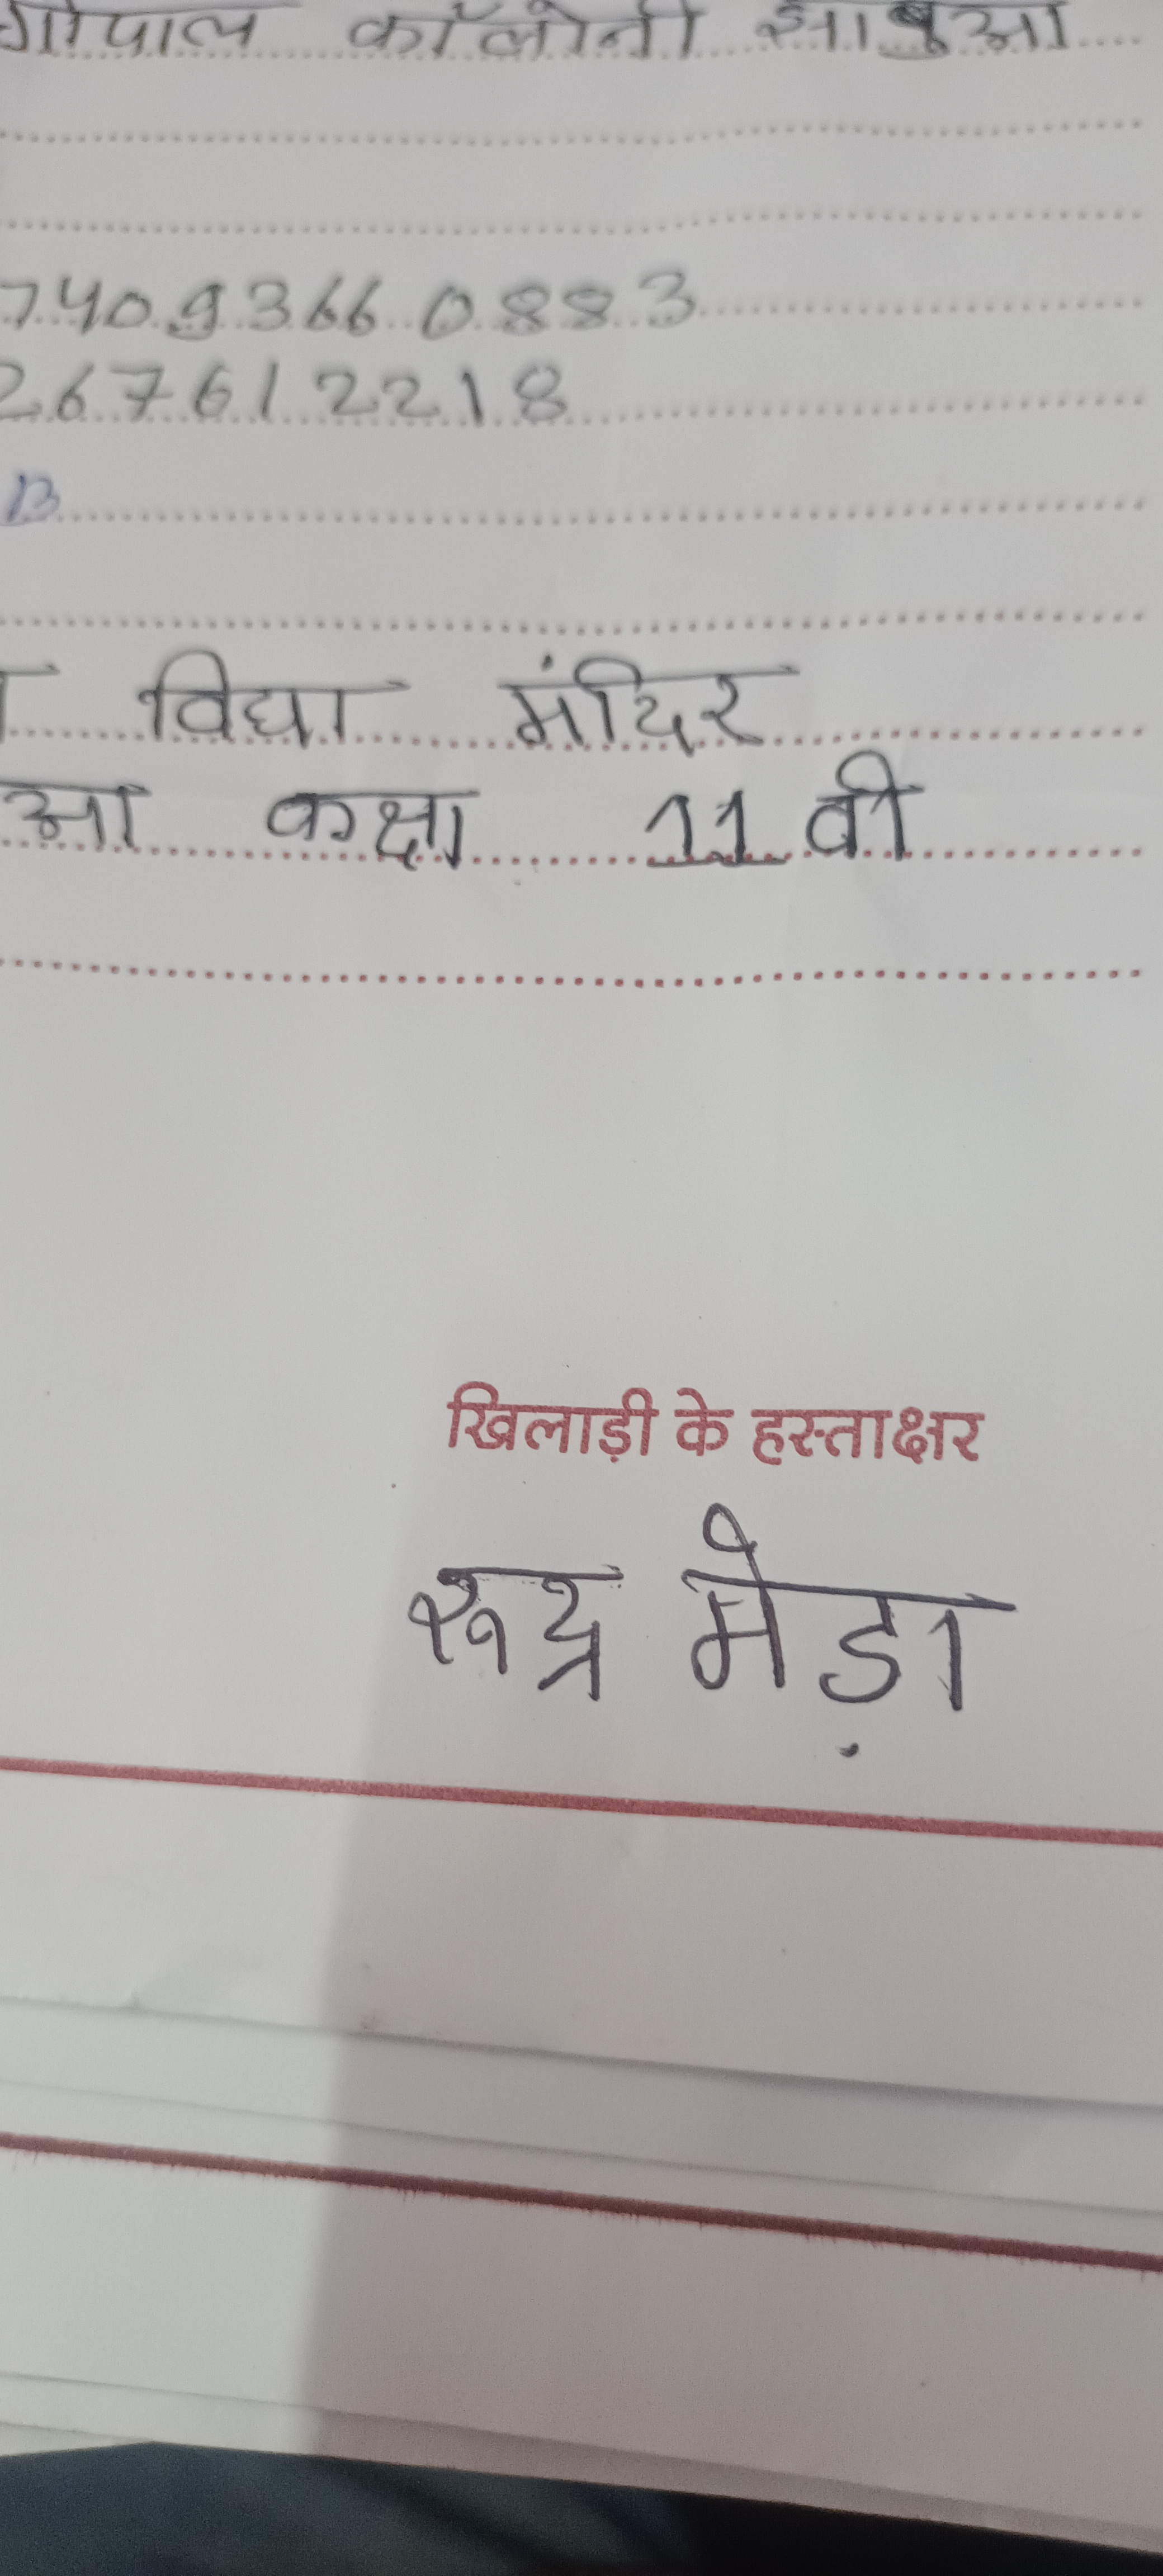 गोपाल कॉलोनी झाबुआ
740 9366 0883
267612218
B
विद्या मंदिर
आ कक्षा 11 वी
खिलाड़ी के हस्ताक्षर
रूद्र मेड़ा